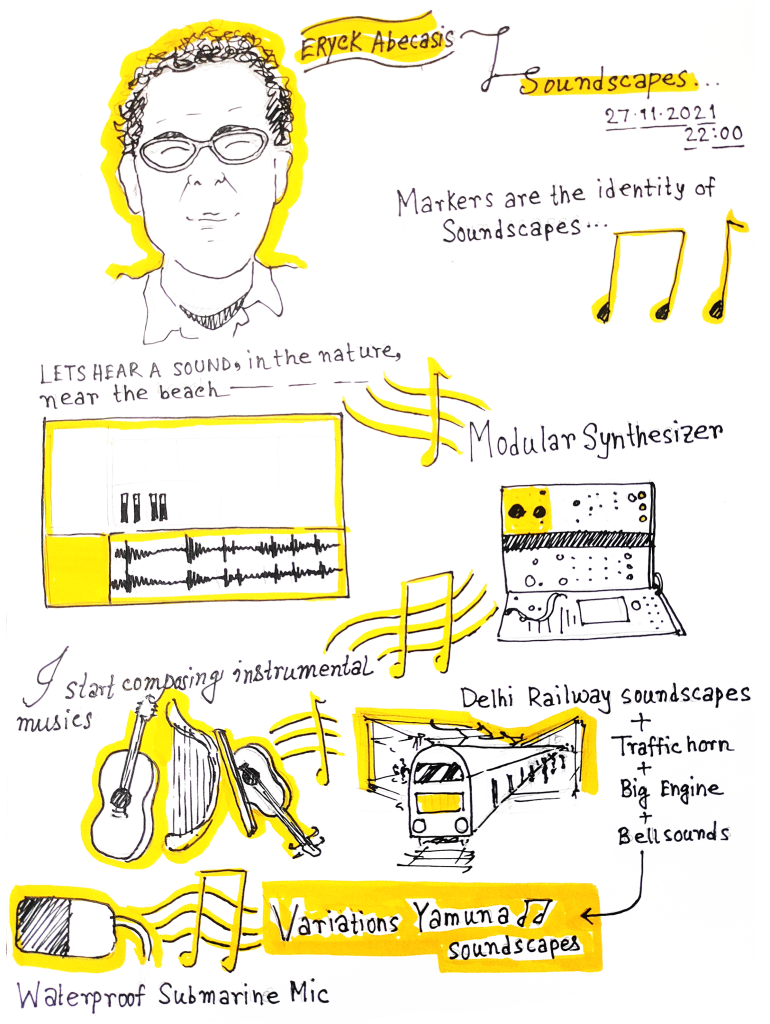 ERYCK Abecasis
Soundscapes...
27.11.2021
22:00
Markers are the identity of
Soundscapes...
LETS HEAR A SOUND, in the nature,
near the beach
Modular Synthesizer
I start composing instrumental
musics
Delhi Railway soundscapes
+
Traffic horn
+
Big Engine
+
Bell sounds
Variations Yamuna
soundscapes
Waterproof Submarine Mic